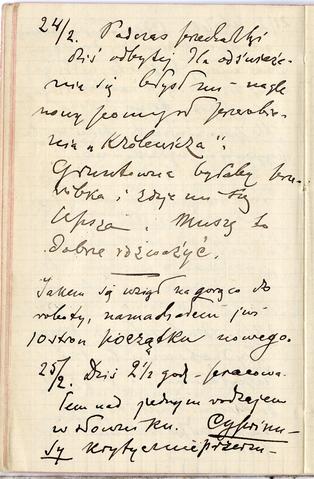 24/2. Podczas przechadzki
dziś odbytej dla odśwież-
nia się błysł mi nagle
nowy pomysł przerobie-
nia „Królewicza".
Gruntowna byłaby prze-
róbka i zdaje mi się
lepsza. Muszę to
dobrze rozważyć.
Jakem się wziął na gorąco do
roboty, namachałem już
10 stron początku nowego.
25/2. Dziś 2½ godz. pracowa-
łem nad jednym rodzajem
w słowniku.
krytycznie